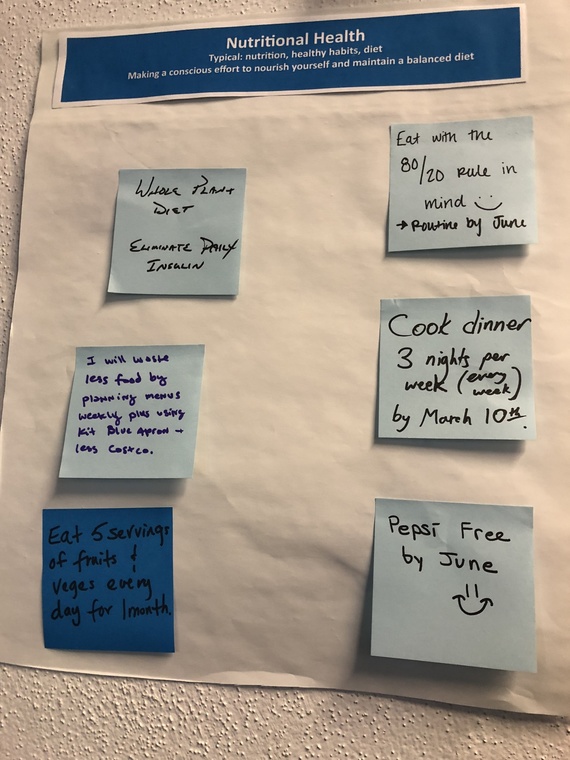 Nutritional Health
Typical: nutrition, healthy habits, diet
Making a conscious effort to nourish yourself and maintain a balanced diet
WHOLE PLANT
DIET
ELIMINATE DAILY
INSULIN
Eat with the
80/20 Rule in
mind
→ Routine by June
I will waste
less food by
planning menus
weekly plus using
Kit Blue Apron +
less Costco.
Cook dinner
3 nights per
week (every
week)
by March 10th.
Eat 5 servings
of fruits &
veges every
day for 1 month.
Pepsi Free
by June